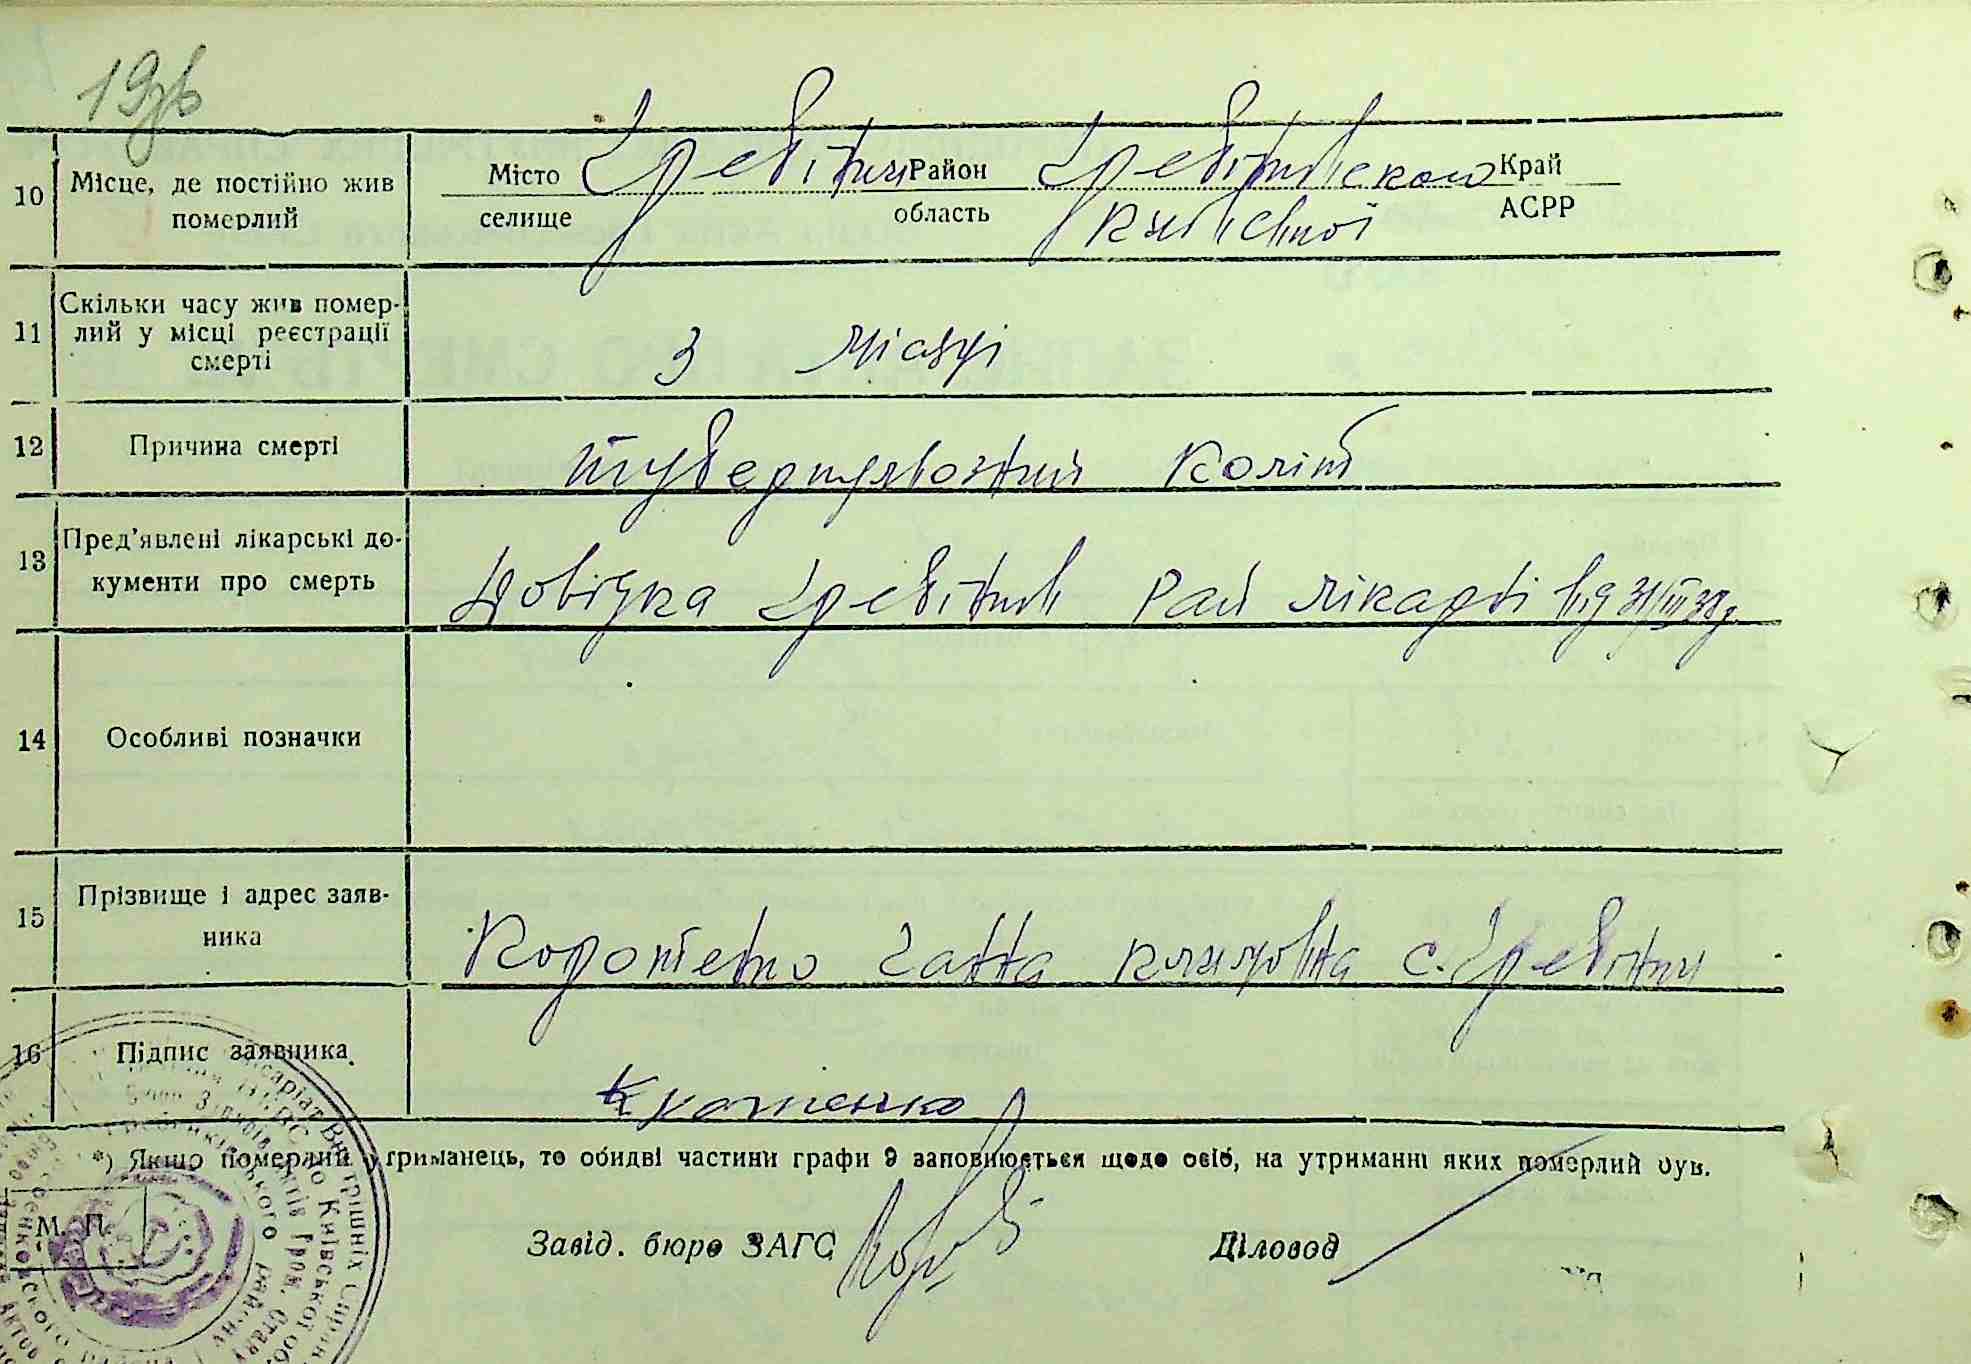 19зв
10 Місце, де постійно жив померлий Місто селище Гребінки Район область Гребінківского Київської Край АСРР
11 Скільки часу жив помер-
лий у місці реєстрації
смерті 3 місяці
12 Причина смерті туберкульозний коліт
13 Пред'явлені лікарські до-
кументи про смерть Довідка Гребінків Рай лікарні від 31/III 38р.
14 Особливі позначки
15 Прізвище і адрес заяв-
ника Ганна Климовна с. Гребінки
16 Підпис заявника
*) Якщо померлий утриманець, то обидві частини графи 9 заповнюється щодо осіб, на утриманні яких померлий був.
М. П.
Завід. бюро ЗАГС Діловод